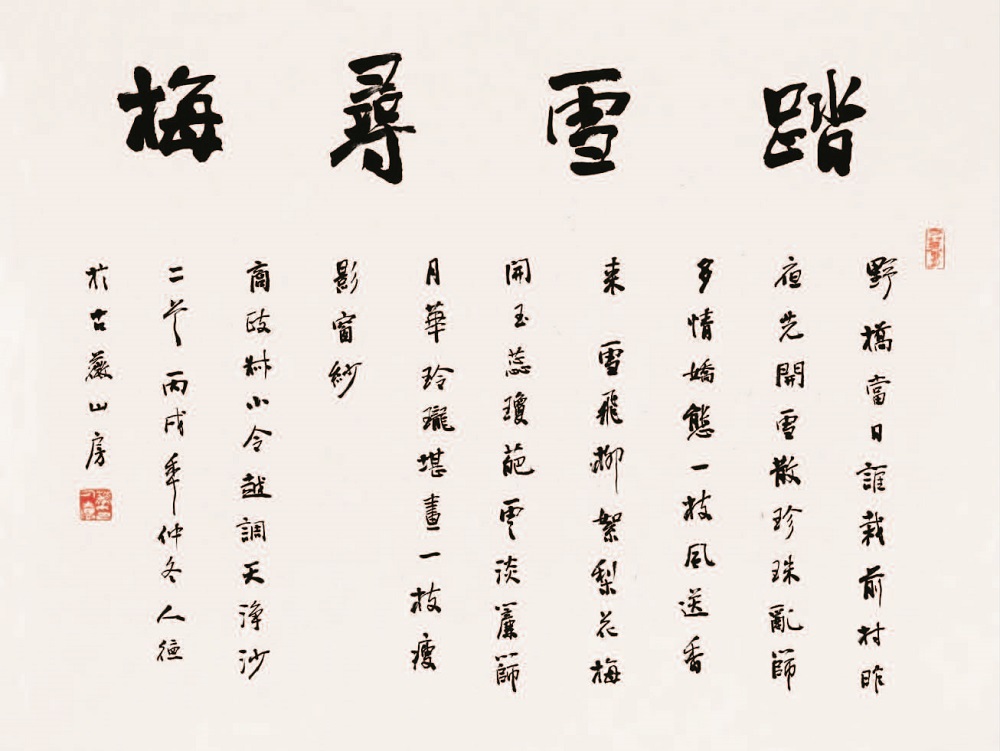 踏雪尋梅
野橋當日誰栽前村昨
夜先開雪散珍珠亂篩
多情嬌態一枝風送香
来 雪飛柳絮梨花梅
開玉蕊瓊葩雲淡簾篩
月華玲瓏堪畫一枝瘦
影窗紗
商政叔小令越調天淨沙
二首 丙戌年仲冬人德
於古薇山房